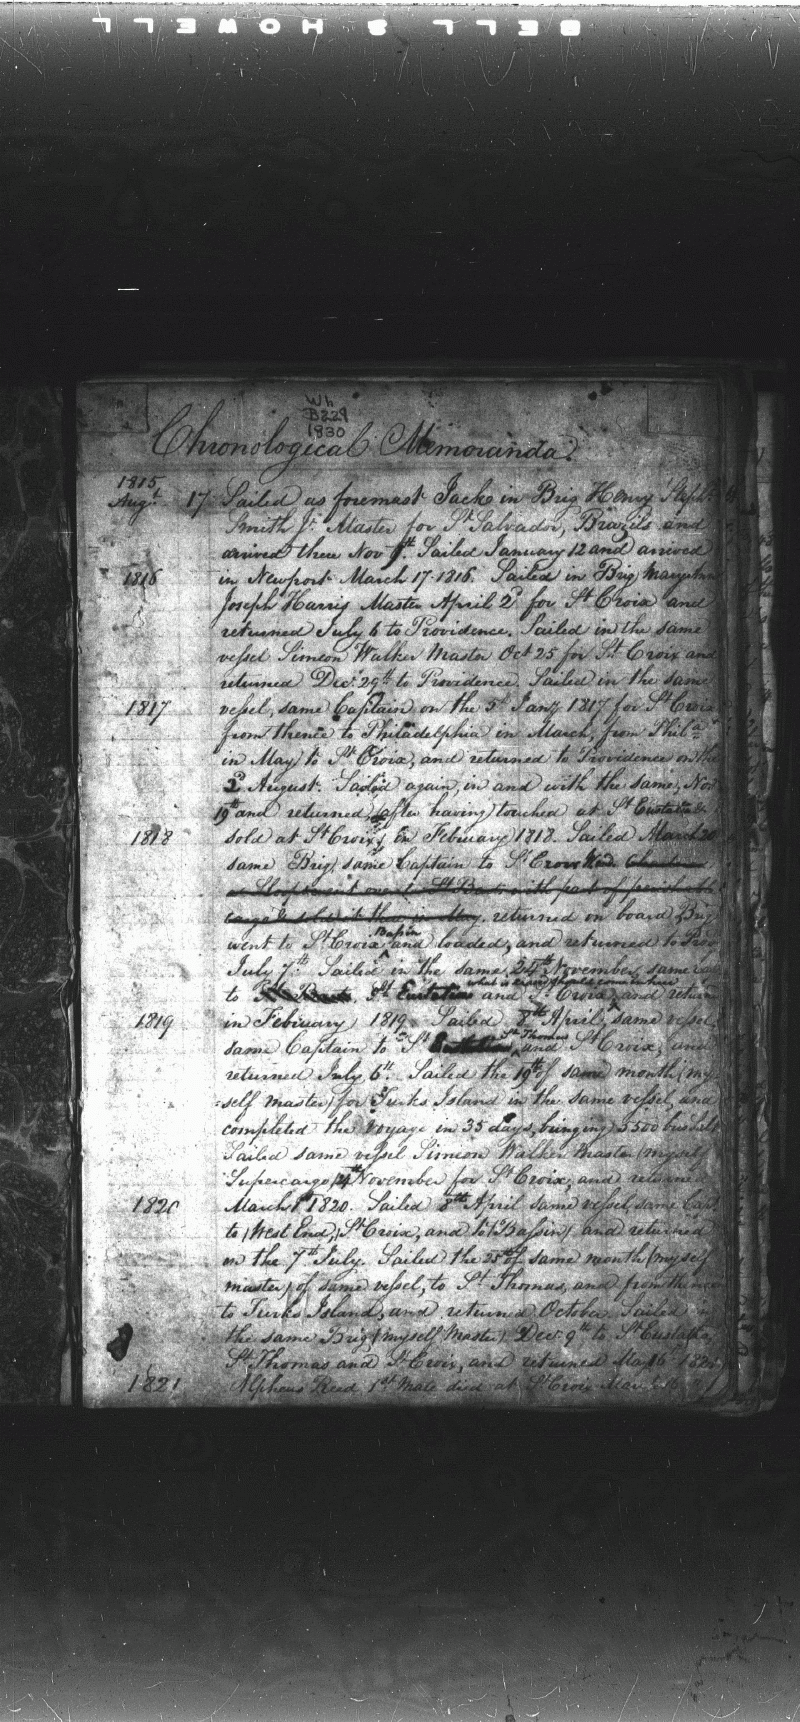 BELL & HOWELL
Wh.
B229
1830
Chronological Memoranda.
1815
Augt. 17 Sailed as foremast Jack in Brig Henry Steph.
Smith Jr. Master for St Salvador, Brazils and
arrived there Nov Sailed January 12 and arrived
1816 in Newport March 17 1816. Sailed in Brig Maryann
Joseph Harris Master April 2d for St Croix and
returned July 6 to Providence. Sailed in the same
vessel Simeon Walker Master Oct 25 for St Croix and
returned Dec. 29th to Providence. Sailed in the same
1817 vessel, same Captain on the Jany 1817 for St Croix
from thence to Philadelphia in March, from Phila
in May to St Croix, and returned to Providence on the
2d August. Sailed again, in and with the same, Nov
19th and returned, (after having) touched at St Eustatia &
1818 sold at St Croix, in February 1818. Sailed March 20
same Brig, same Captain to St Croix
over St Barts with part of perishable
cargo & sold it in May. returned on board Brig
went to St Croix Bassin and loaded, and returned to Prov
July 7th. Sailed in the same, 24th November, same
to St Eustatia and St Croix, and return
1819 in February 1819. Sailed 8th April, same vessel,
same Captain to St St Thomas and St Croix, and
returned July 6th. Sailed the 19th of same month (my
=self master) for Turks Island in the same vessel, and
completed the voyage in 35 days, bringing 5500 bushels
Sailed same vessel Simeon Walker Master (myself
Supercargo) November for St Croix, and returned
1820 March 1st 1820. Sailed 8th April same vessel, same Capt.
to (West End,) St Croix, and to (Bassin) and returned
on the 7th July. Sailed the 25th of same month (myself
master) of same vessel, to St Thomas, and from thence
to Turks Island, and returned October. Sailed in
the same Brig (myself Master) Decr. 9th to St Eustatia,
St Thomas and St Croix, and returned
1821 Alpheus Reed 1st Mate died at St Croix